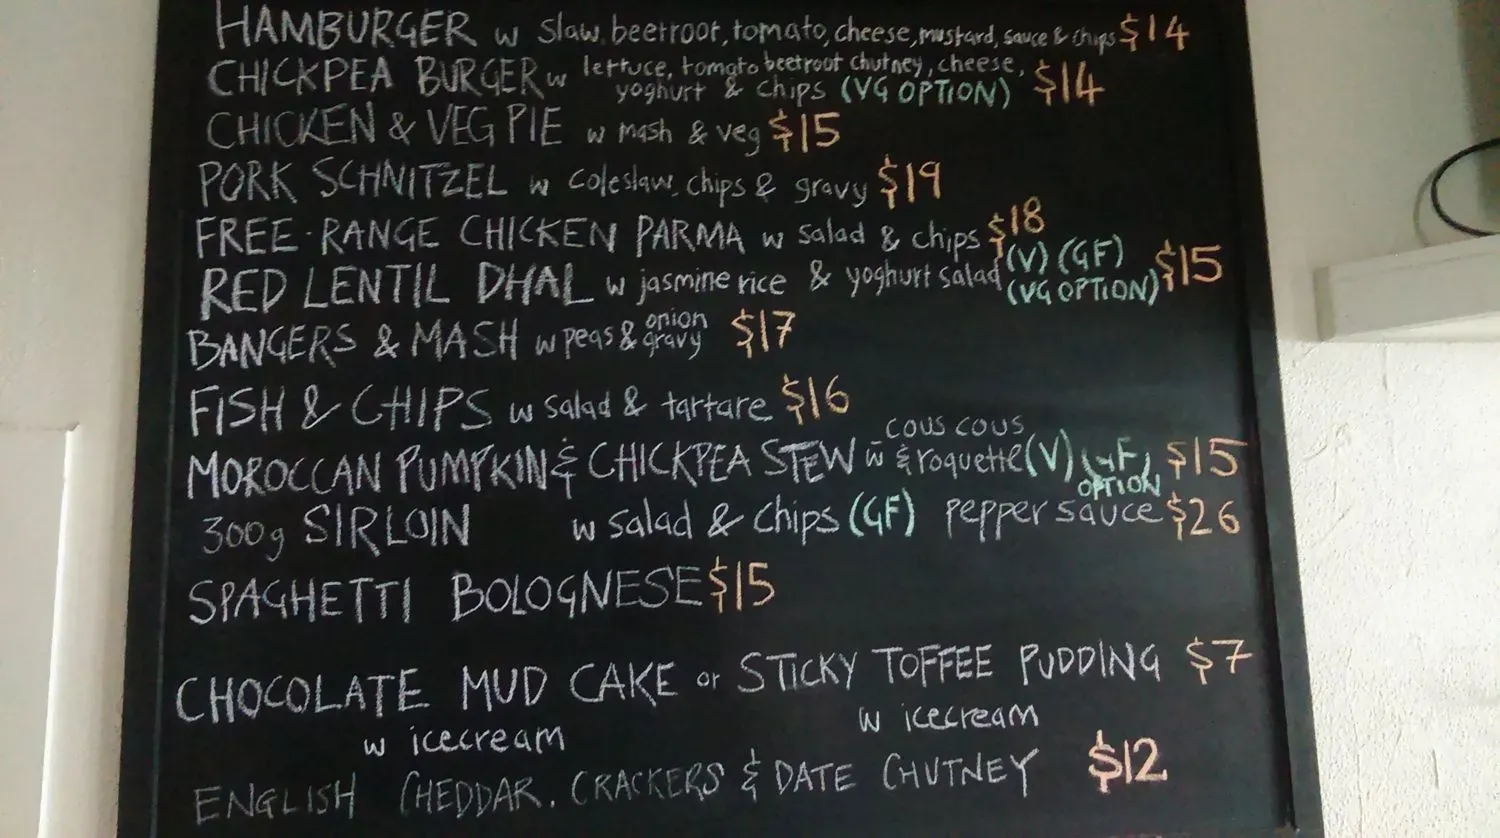 HAMBURGER w slaw, beetroot, tomato, cheese, mustard, sauce & chips $14
CHICKPEA BURGER w lettuce, tomato beetroot chutney, cheese,
yoghurt & chips (VG OPTION) $14
CHICKEN & VEG PIE w mash & veg $15
PORK SCHNITZEL w coleslaw, chips & gravy $19
FREE-RANGE CHICKEN PARMA w salad & chips $18
RED LENTIL DHAL w jasmine rice & yoghurt salad (V) (GF) $15
(VG OPTION)
BANGERS & MASH w peas & onion
gravy $17
FISH & CHIPS w salad & tartare $16
MOROCCAN PUMPKIN & CHICKPEA STEW w cous cous
& roquette (V) (GF) $15
OPTION
300g SIRLOIN w salad & chips (GF) pepper sauce $26
SPAGHETTI BOLOGNESE $15
CHOCOLATE MUD CAKE or STICKY TOFFEE PUDDING $7
w icecream w icecream
ENGLISH CHEDDAR, CRACKERS & DATE CHUTNEY $12